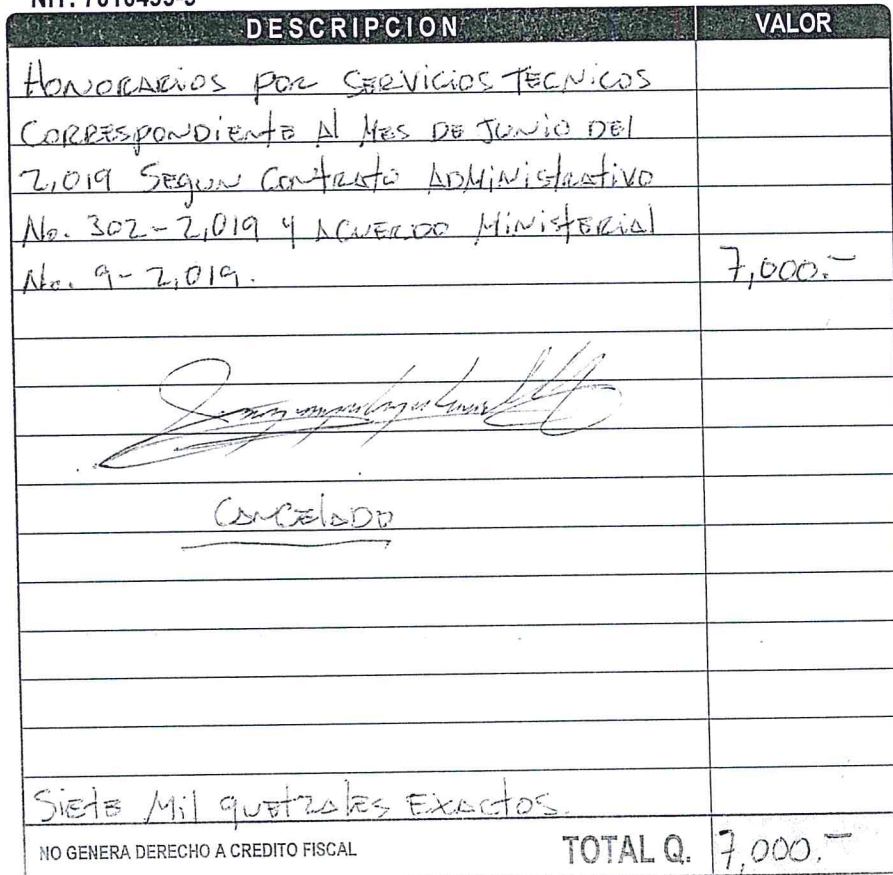 DESCRIPCION VALOR
HONORARIOS POR SERVICIOS TECNICOS
CORRESPONDIENTE Al MES DE JUNIO DEl
2,019 SEGUN Contrato ADMiNistrativo
No. 302-2,019 Y ACUERDO MiNistERial
No. 9-2,019. 7,000.-
CANCElADO
SiEtE Mil quEtzalEs EXActos.
NO GENERA DERECHO A CREDITO FISCAL TOTAL Q. 7,000.-